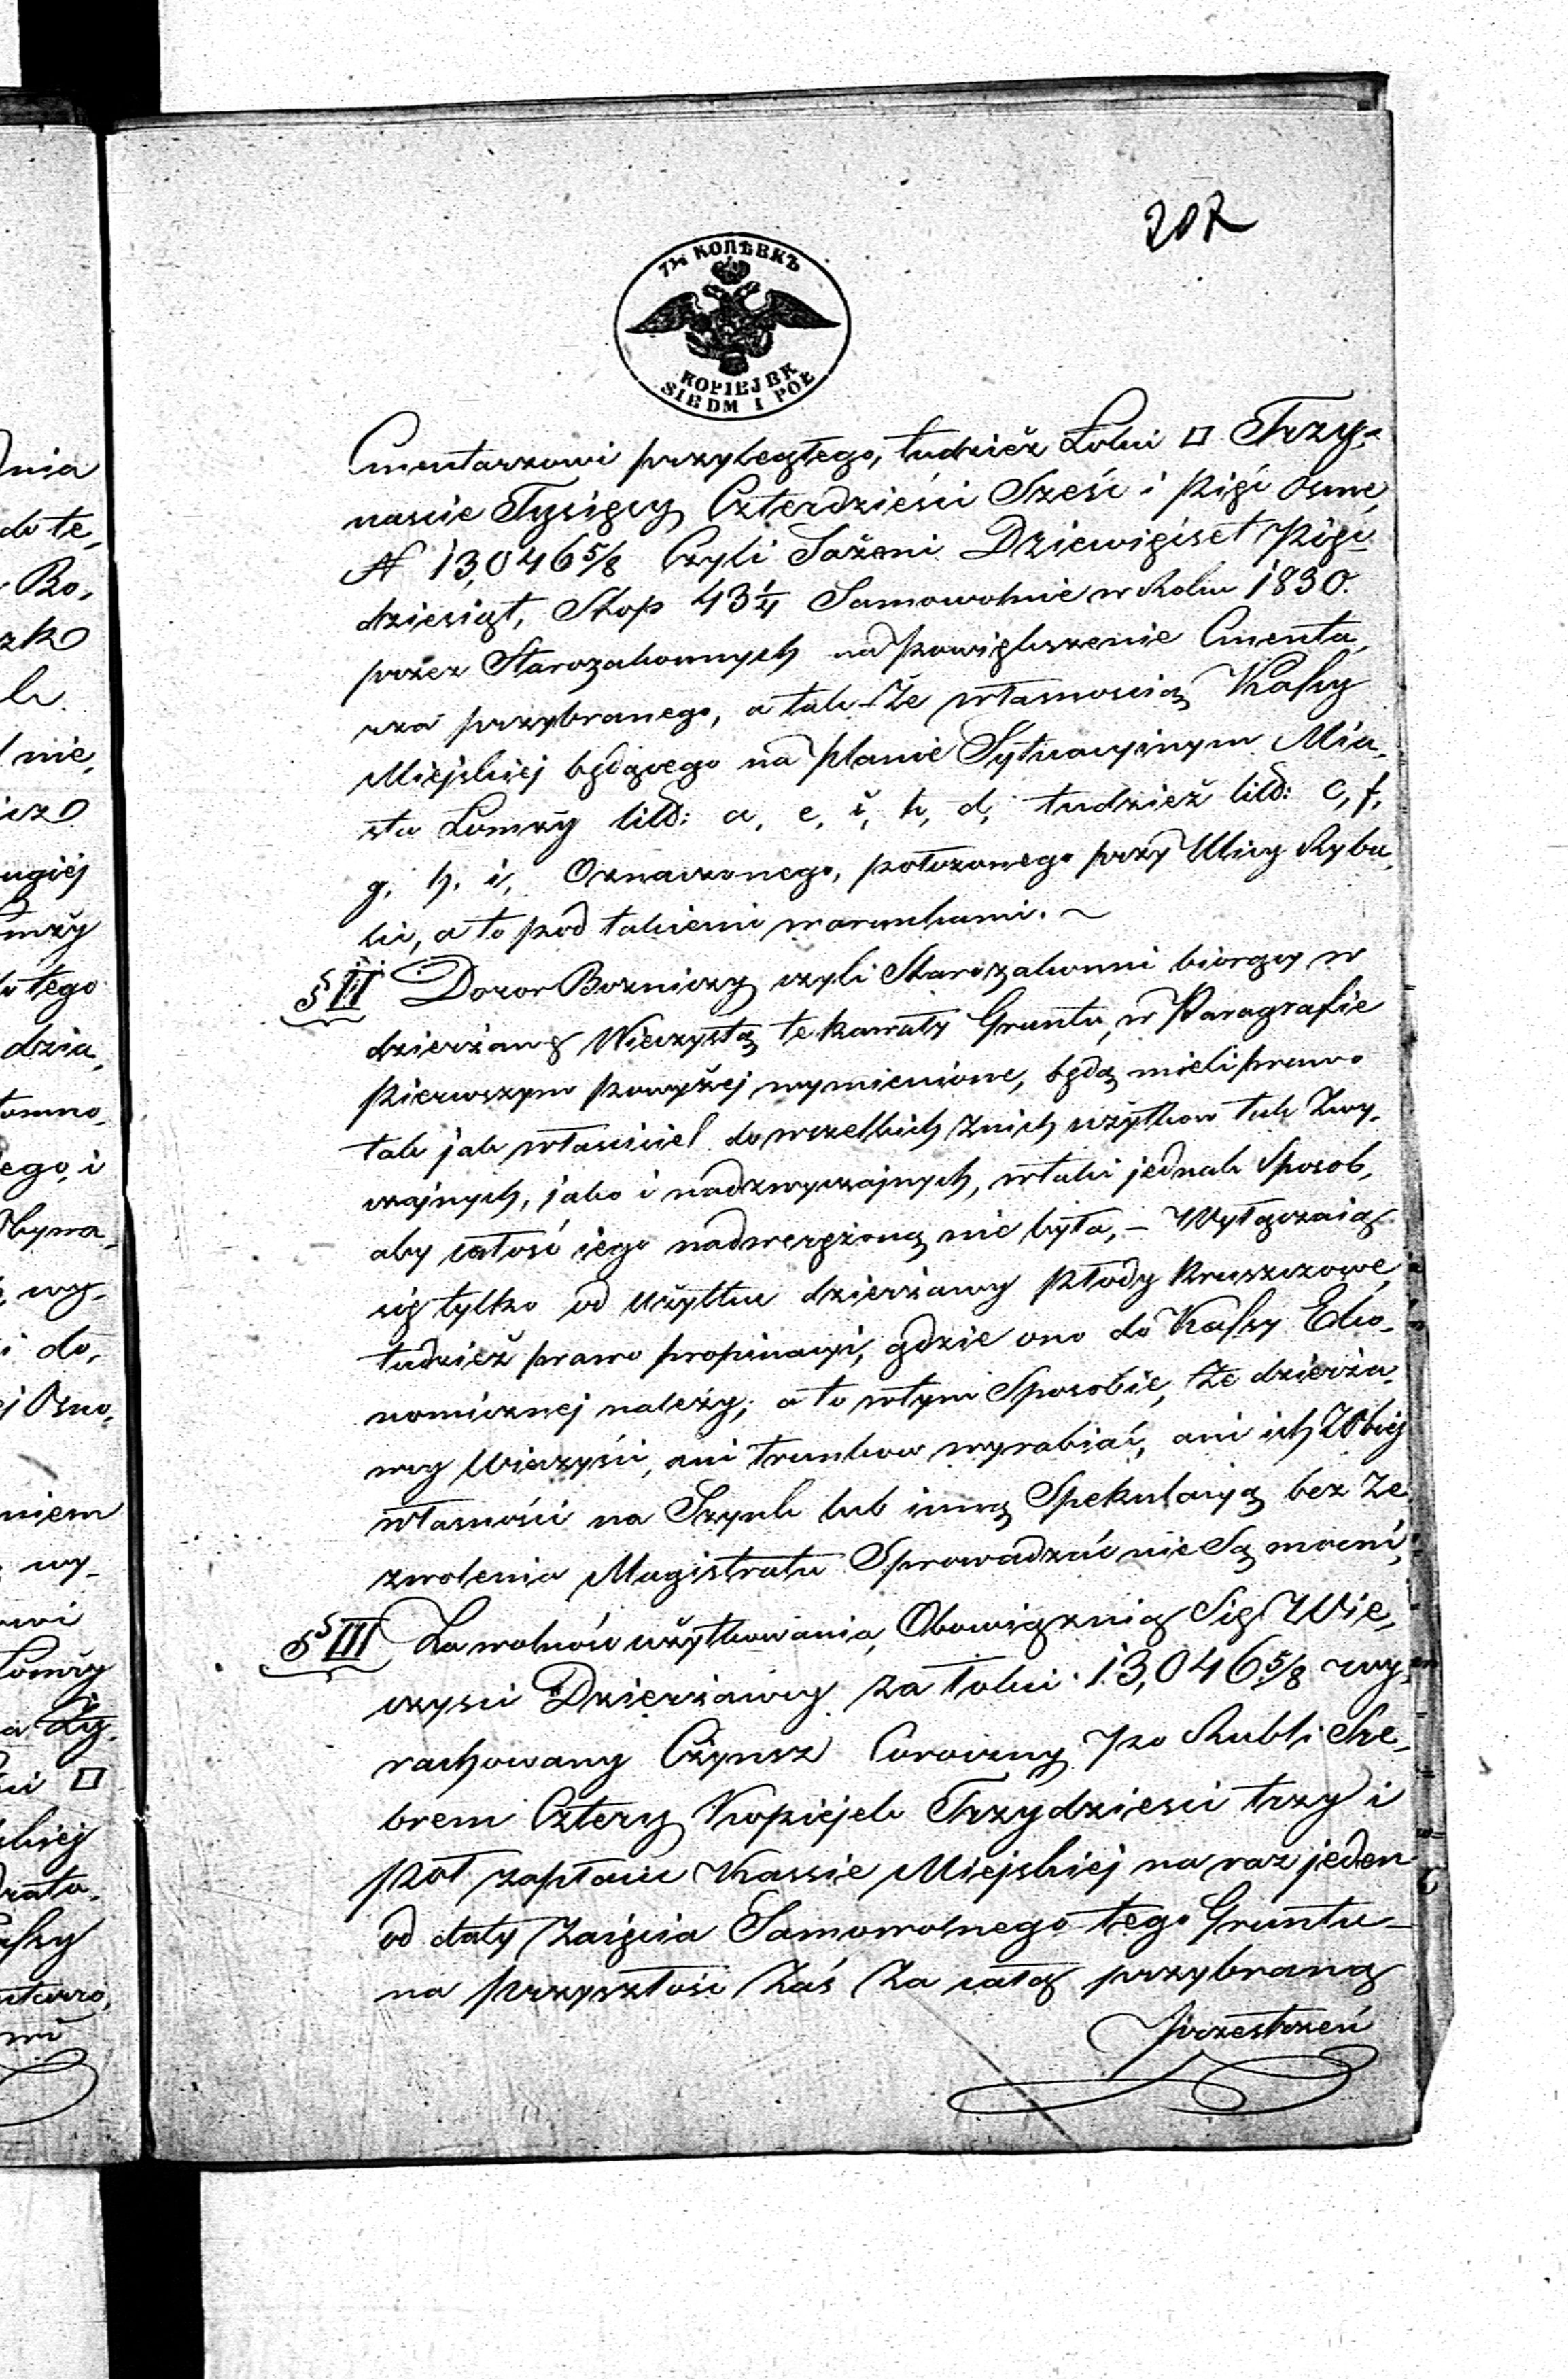 207
7½ КОПѢЕКЪ
KOPIEJEK
SIEDM I PÓŁ
Cmentarzowi przyległego, tudzież Łokci □ Trzy-
naście Tysięcy Czterdzieści Sześć i pięć ósme,
N 13,046 5/8 Czyli Sażeni Dziewięćset Pięć-
dziesiąt, Stop 43 1/4 Samowolnie w Roku 1830.
przez Starozakonnych na powiększenie Cmenta,
rza przybranego, a tak-że własnością Kassy
Miejskiej będącego na planie Sytuacyinym Mia,
sta Łomży litt: a, e, i, k, d, tudzież litt: c, f,
g, h, i, Oznaczonego, położonego przy Ulicy Ryba,
ki, a to pod takiemi warunkami. ~
§ II Dozor Bozniczy czyli Starozakonni biorący w
dzierżawę Wieczystą te kawały Gruntu, w Paragrafie
pierwszym powyżej wymienione, będą mieli prawo
tak jak właściciel do wszelkich z nich użytkow tak Zwy-
czajnych, jako i nadzwyczajnych, w taki jednak Sposob,
aby całość iego nadwerężoną nie była, – Wyłączaią
się tylko od użytku dzierżawy płody kruszczowe,
tudzież prawo propinacyi, gdzie ono do Kassy Eko-
nomicznej należy; a to w tym Sposobie, że dzierża,
wcy Wieczyści, ani trunkow wyrabiać, ani ich Z Obcej
własności na Szynk lub inną Spekulacyą bez Ze
zwolenia Magistratu Sprowadzać nie Są mocni,
§ III Za wolność użytkowania, Obowiązuią Się Wie,
czyści Dzierżawcy za łokci 13,046 5/8 wy,
rachowany Czynsz Coroczny po Rubli Sre,
brem Cztery Kopiejek Trzydzieści trzy i
pół zapłacić Kassie Miejskiej na raz jeden
od daty Zaięcia Samowolnego tego Gruntu –
na przyszłość Zaś Za całą przybraną
Przestrzeń